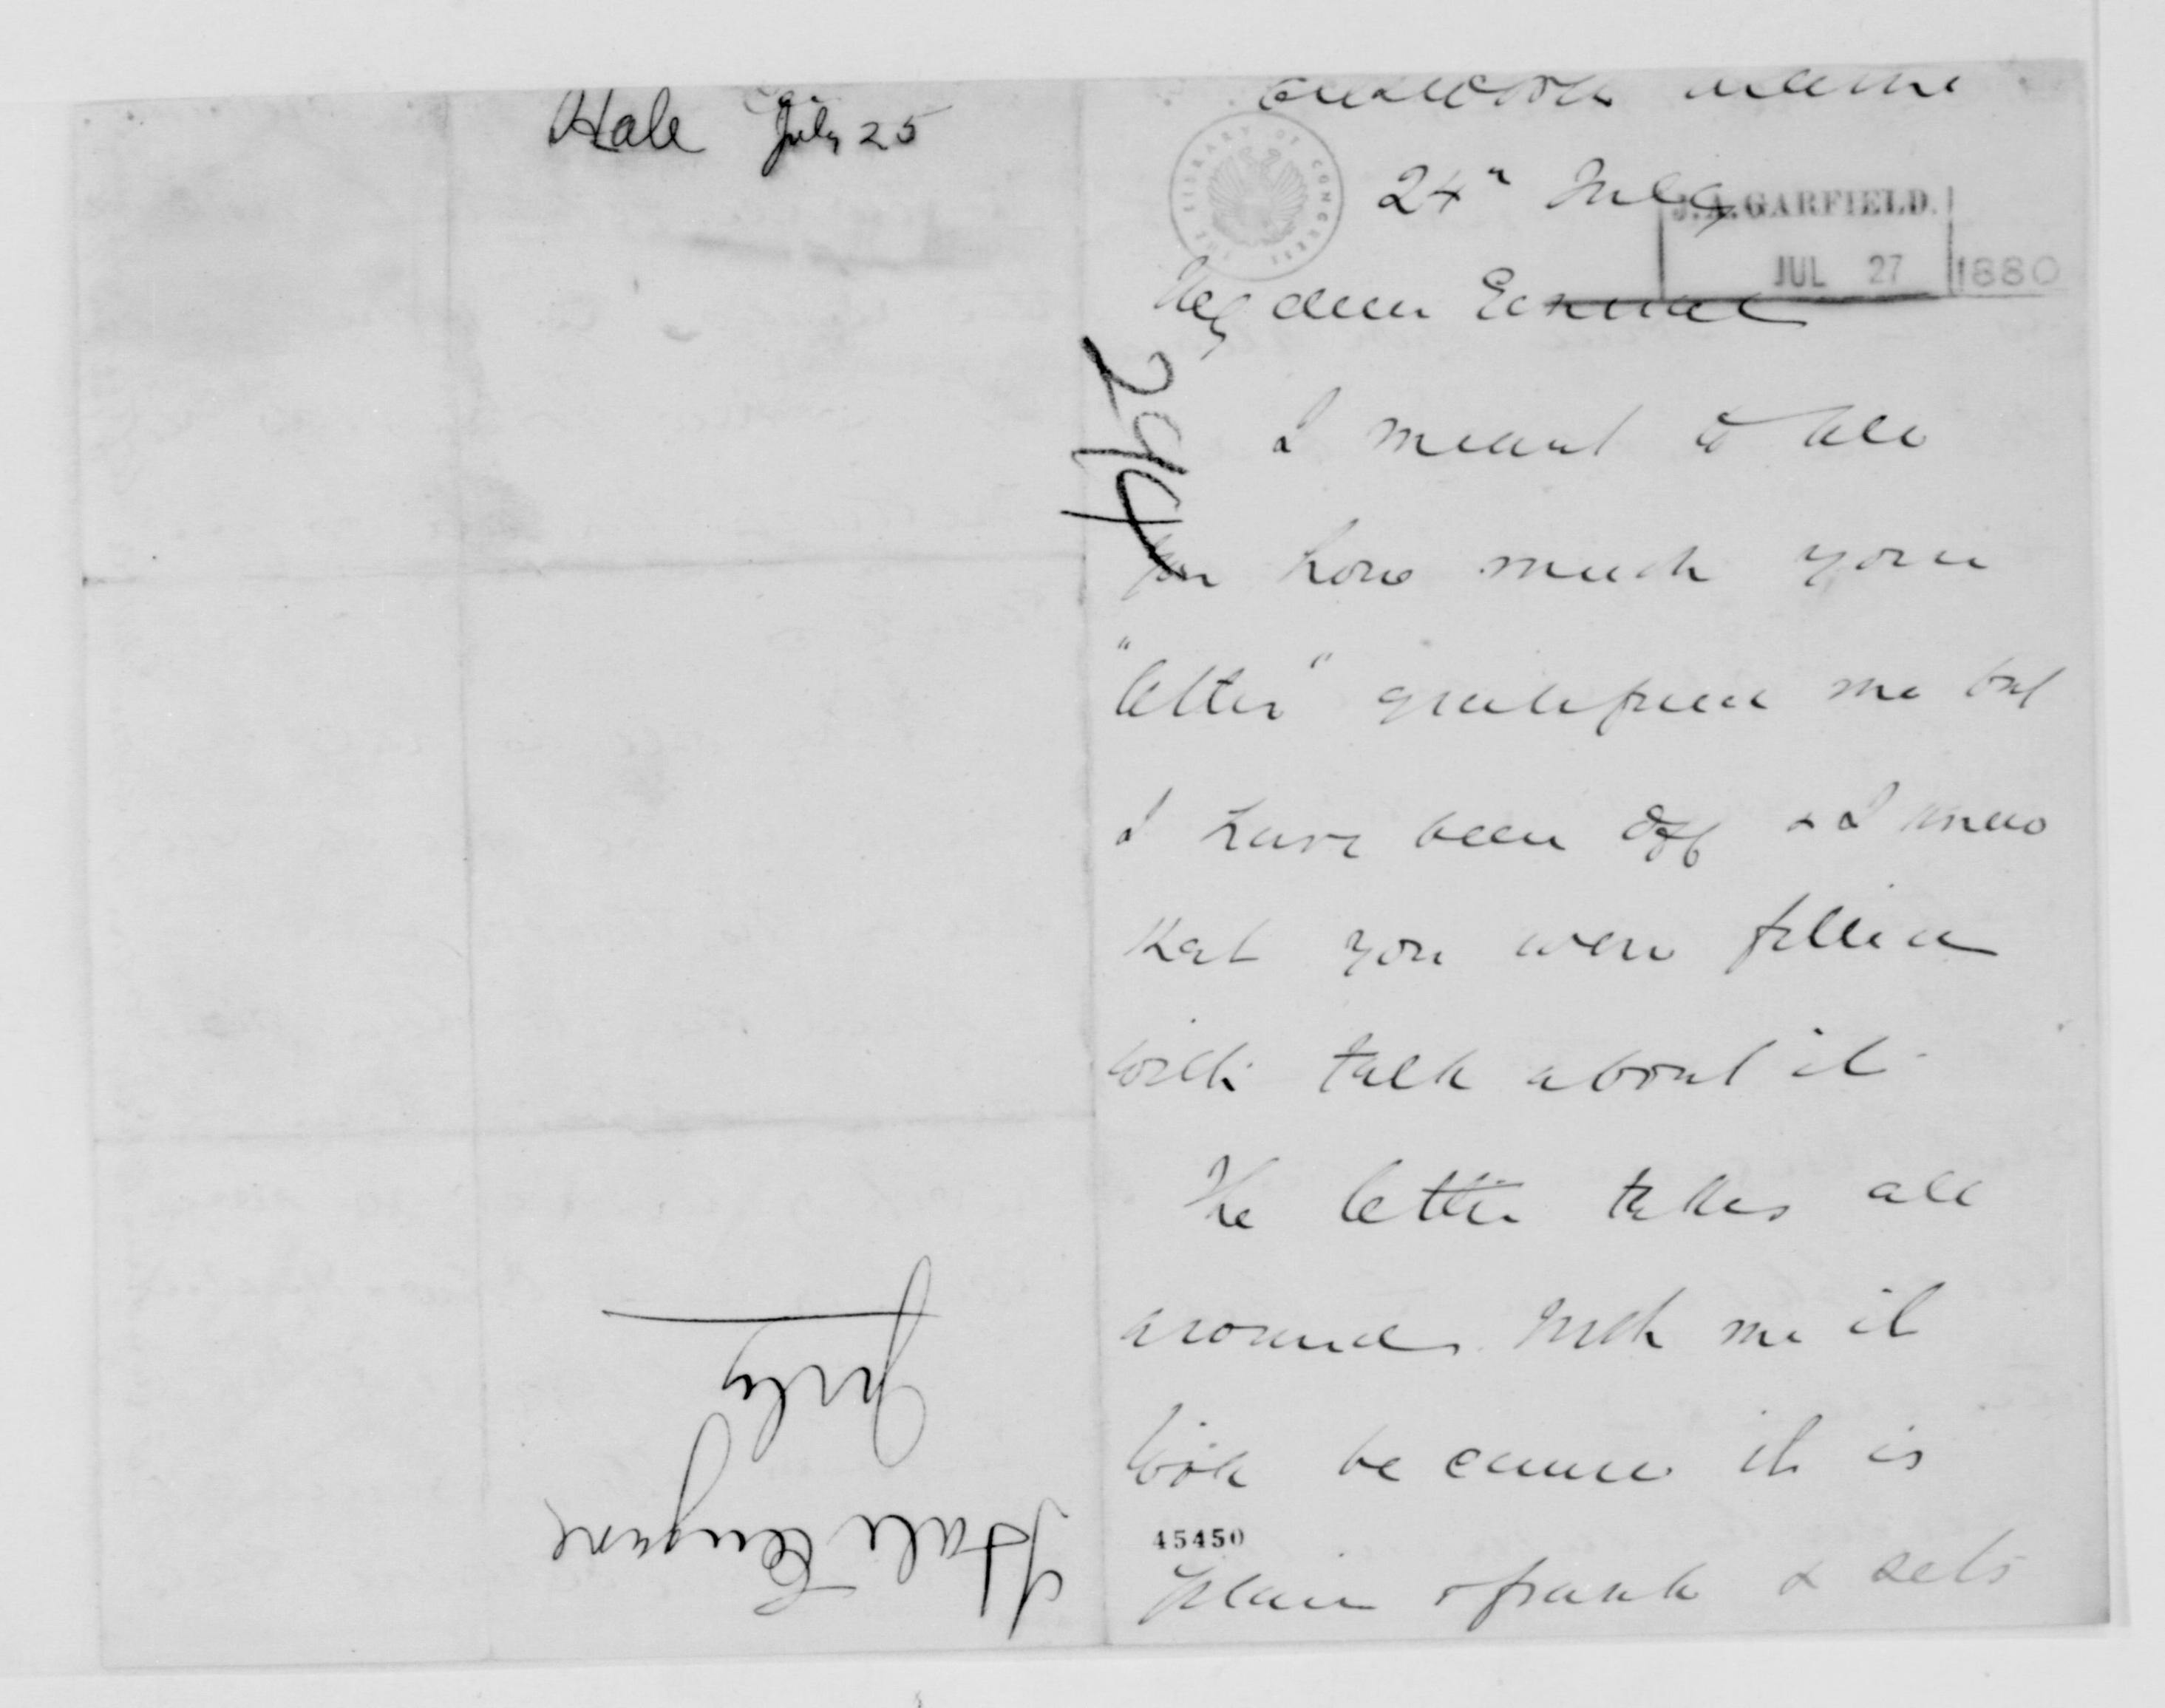 Hale July 25
Ellsworth Maine
24" July
THE LIBRARY OF CONGRESS
J. A. GARFIELD.
JUL 27 1880
My dear General
294
I meant to tell
you how much your
"letter" gratified me but
I have been off & I knew
that you were filled
with talk about it.
The letter takes all
around. With me it
took because it is
45450
plain & frank & sets
Hale Eugene
July